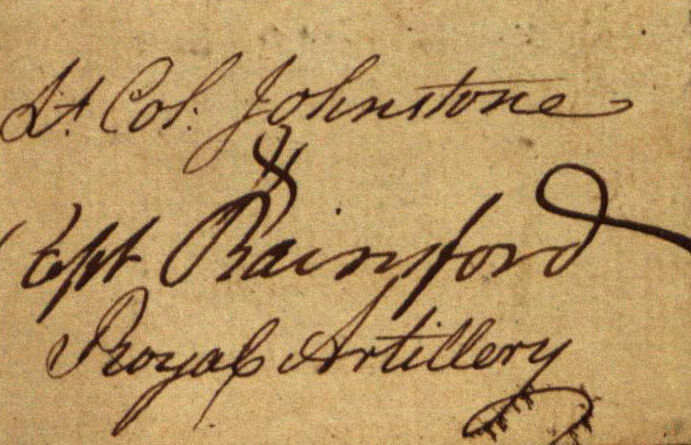 Lt. Col. Johnstone
&
Capt Rainsford
Royal Artillery